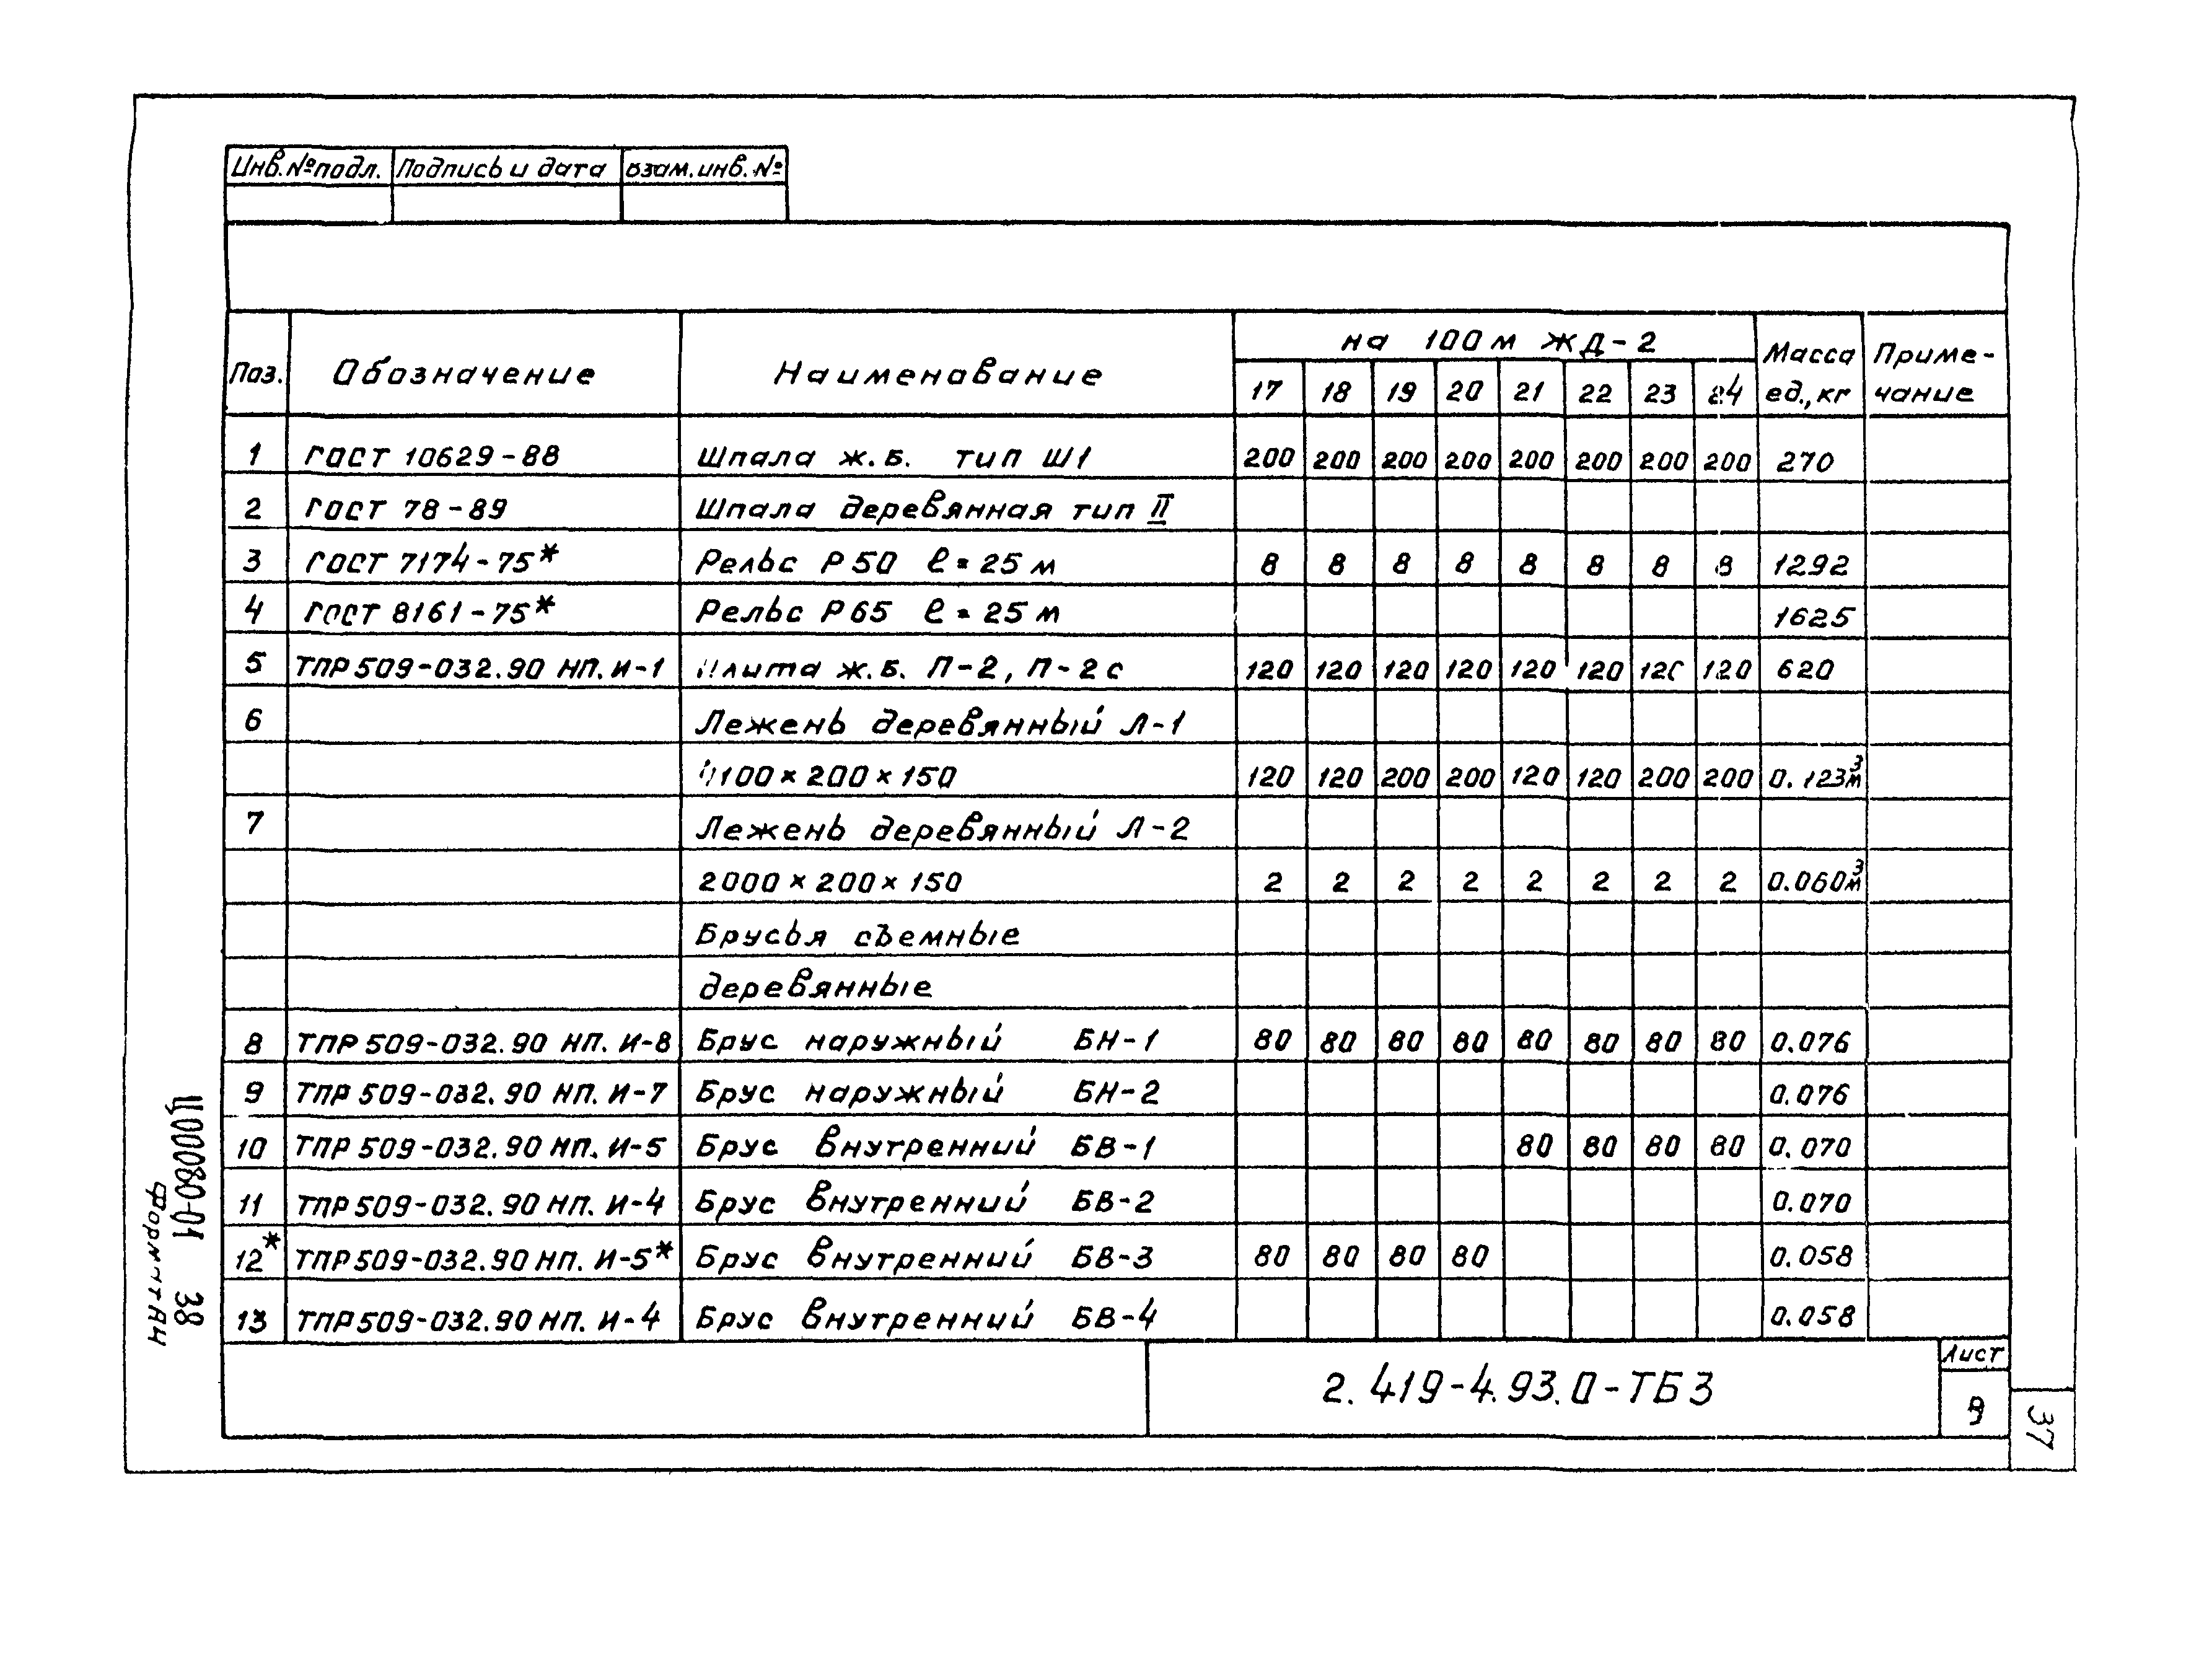 Инв.№подл. Подпись и дата Взам.инв.№
на 100 м ЖД-2
Поз. Обозначение Наименование 17 18 19 20 21 22 23 24 Масса ед.,кг Приме-чание
1 ГОСТ 10629-88 Шпала ж.б. тип Ш1 200 200 200 200 200 200 200 200 270
2 ГОСТ 78-89 Шпала деревянная тип II
3 ГОСТ 7174-75* Рельс Р50 ℓ=25 м 8 8 8 8 8 8 8 8 1292
4 ГОСТ 8161-75* Рельс Р65 ℓ=25 м 1625
5 ТПР509-032.90 НП. И-1 Плита ж.б. П-2, П-2с 120 120 120 120 120 120 120 120 620
6 Лежень деревянный Л-1
4100×200×150 120 120 200 200 120 120 200 200 0.123м³
7 Лежень деревянный Л-2
2000×200×150 2 2 2 2 2 2 2 2 0.060м³
Брусья съемные
деревянные
8 ТПР509-032.90 НП. И-8 Брус наружный БН-1 80 80 80 80 80 80 80 80 0.076
9 ТПР509-032.90 НП. И-7 Брус наружный БН-2 0.076
10 ТПР509-032.90 НП. И-5 Брус внутренний БВ-1 80 80 80 80 0.070
11 ТПР509-032.90 НП. И-4 Брус внутренний БВ-2 0.070
12* ТПР509-032.90 НП. И-5* Брус внутренний БВ-3 80 80 80 80 0.058
13 ТПР509-032.90 НП. И-4 Брус внутренний БВ-4 0.058
2.419-4.93.0-ТБ3
Лист
9
37
Ц00080-01 38
Формат А4